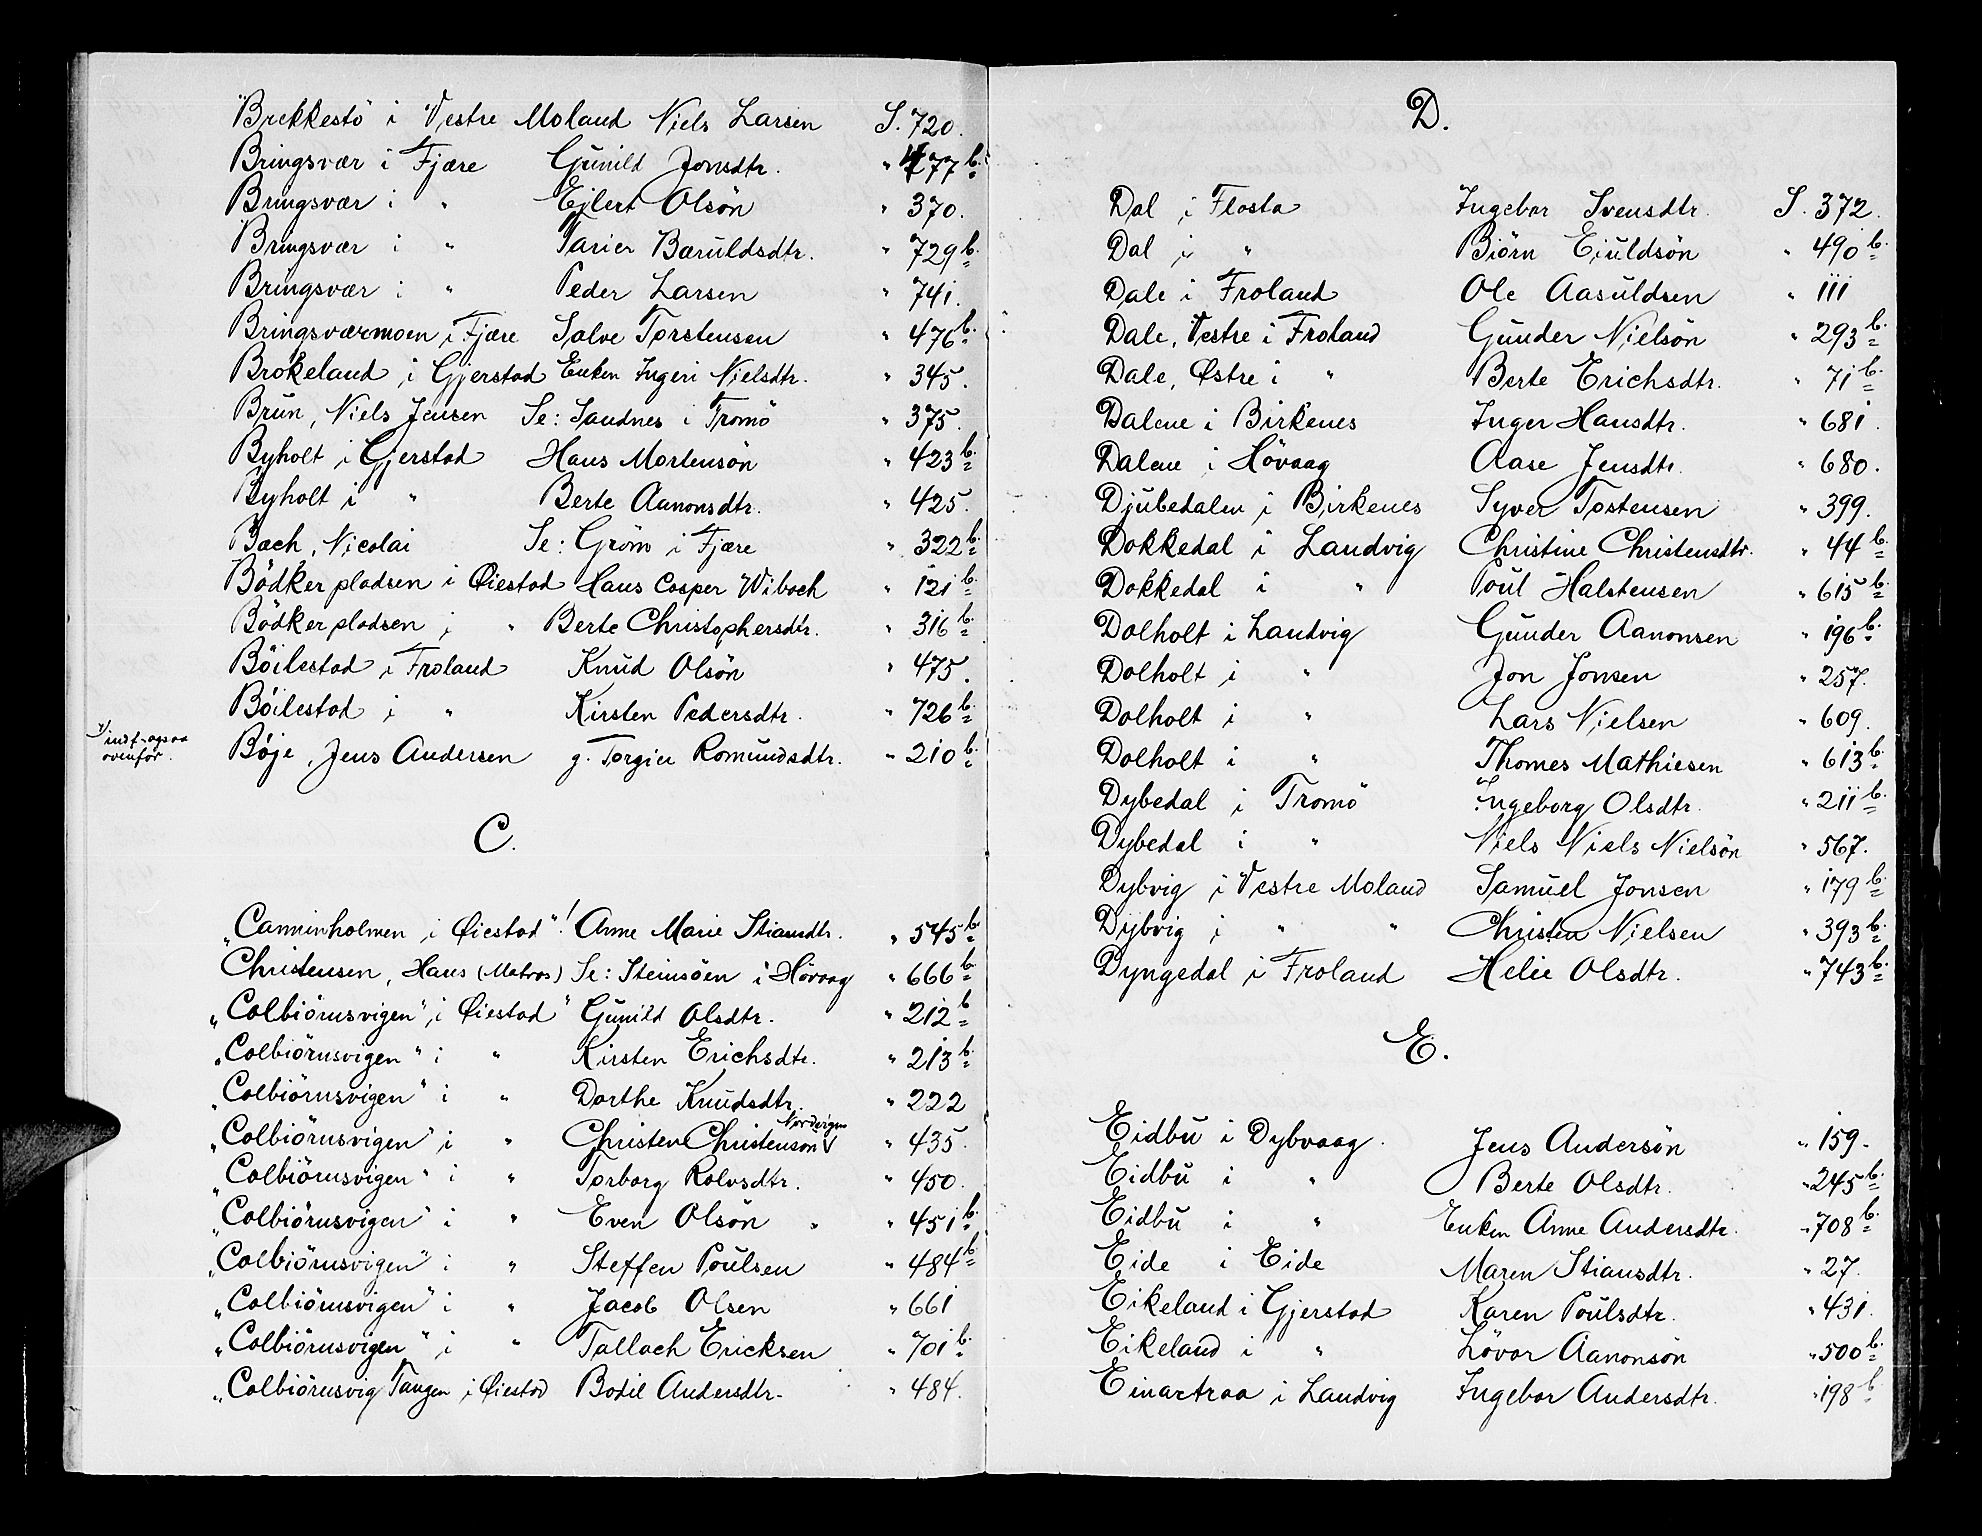 Brekkestö i Vestre Moland Niels Larsen S. 720.
Bringsvær i Fjære Gunild Jonsdtr. " 477 b.
Bringsvær i " Ejlert Olsön " 370.
Bringsvær i " Tarier Bæruldsdtr. " 729 b.
Bringsvær i " Peder Larsen " 741.
Bringsværmoen i Fjære Salve Torstensen " 476 b.
Brokeland i Gjerstad Enken Ingeri Nielsdtr. " 345.
Brun, Niels Jensen Se: Sandnes i Tromö " 375.
Byholt i Gjerstad Hans Mortensön " 423 b.
Byholt i " Berte Aanonsdtr. " 425.
Bæch, Nicolai Se: Gröm i Fjære " 322 b.
Bödkerpladsen i Øiestad Hans Casper Wibach " 121 b.
Bödkerpladsen i " Berte Christophersdtr. " 316 b.
Böilestad i Froland Knud Olsön " 475.
Böilestad i " Kirsten Pedersdtr. " 726 b.
Böje, Jens Andersen g. Torgier Romundsdtr. " 210 b.
indf. ogsaa
ovenfor.
C.
"Canninholmen i Øiestad"! Anne Marie Stiansdtr. " 545 b.
Christensen, Hans (Matros) Se: Steinsöen i Hövaag " 666 b.
"Colbiörnsvigen" i Øiestad" Gunild Olsdtr. " 212 b
"Colbiörnsvigen" i " Kirsten Erichsdtr. " 213 b.
"Colbiörnsvigen" i " Dorthe Knudsdtr. " 222
Nordvigen
"Colbiörnsvigen" i " Christen Christensön V " 435.
"Colbiörnsvigen" i " Torborg Rolvsdtr. " 450.
"Colbiörnsvigen" i " Even Olsön " " 451 b.
"Colbiörnsvigen" i " Steffen Poulsen " 484 b.
"Colbiörnsvigen" i " Jacob Olsen " 661
"Colbiörnsvigen" i " Tallach Ericksen " 701 b.
"Colbiörnsvig Tangen i Øiestad Bodil Andersdtr. " 484.
D.
Dal i Flosta Ingebor Svensdtr. S. 372.
Dal i " Biörn Eiuldsön " 490 b.
Dale i Froland Ole Aasuldsen " 111
Dale, Vestre i Froland Gunder Nielsön " 293 b.
Dale, Østre i " Berte Erichsdtr. " 71 b.
Dalene i Birkenes Inger Hansdtr. " 681.
Dalene i Hövaag Aase Jensdtr. " 680.
Djubedalen i Birkenes Syver Tostensen " 399.
Dokkedal i Landvig Christine Christensdtr. " 44 b.
Dokkedal i " Poul Halstensen " 615 b.
Dolholt i Landvig Gunder Aanonsen " 196 b.
Dolholt i " Jon Jonsen " 257.
Dolholt i " Lars Nielsen " 609.
Dolholt i " Thomes Mathiesen " 613 b.
Dybedal i Tromö Ingeborg Olsdtr. " 211 b.
Dybedal i " Niels Niels Nielsön " 567.
Dybvig i Vestre Moland Samuel Jonsen " 179 b.
Dybvig i " " Christen Nielsen " 393 b.
Dyngedal i Froland Helie Olsdtr. " 743 b.
E.
Eidbu i Dybvaag. Jens Andersön " 159.
Eidbu i " Berte Olsdtr. " 245 b.
Eidbu i " Enken Anne Andersdtr. " 708 b.
Eide i Eide Maren Stiansdtr. " 27.
Eikeland i Gjerstad Karen Poulsdtr. " 431.
Eikeland i " Lövor Aanonsön " 500 b.
Einartraa i Landvig Ingebor Andersdtr. " 198 b